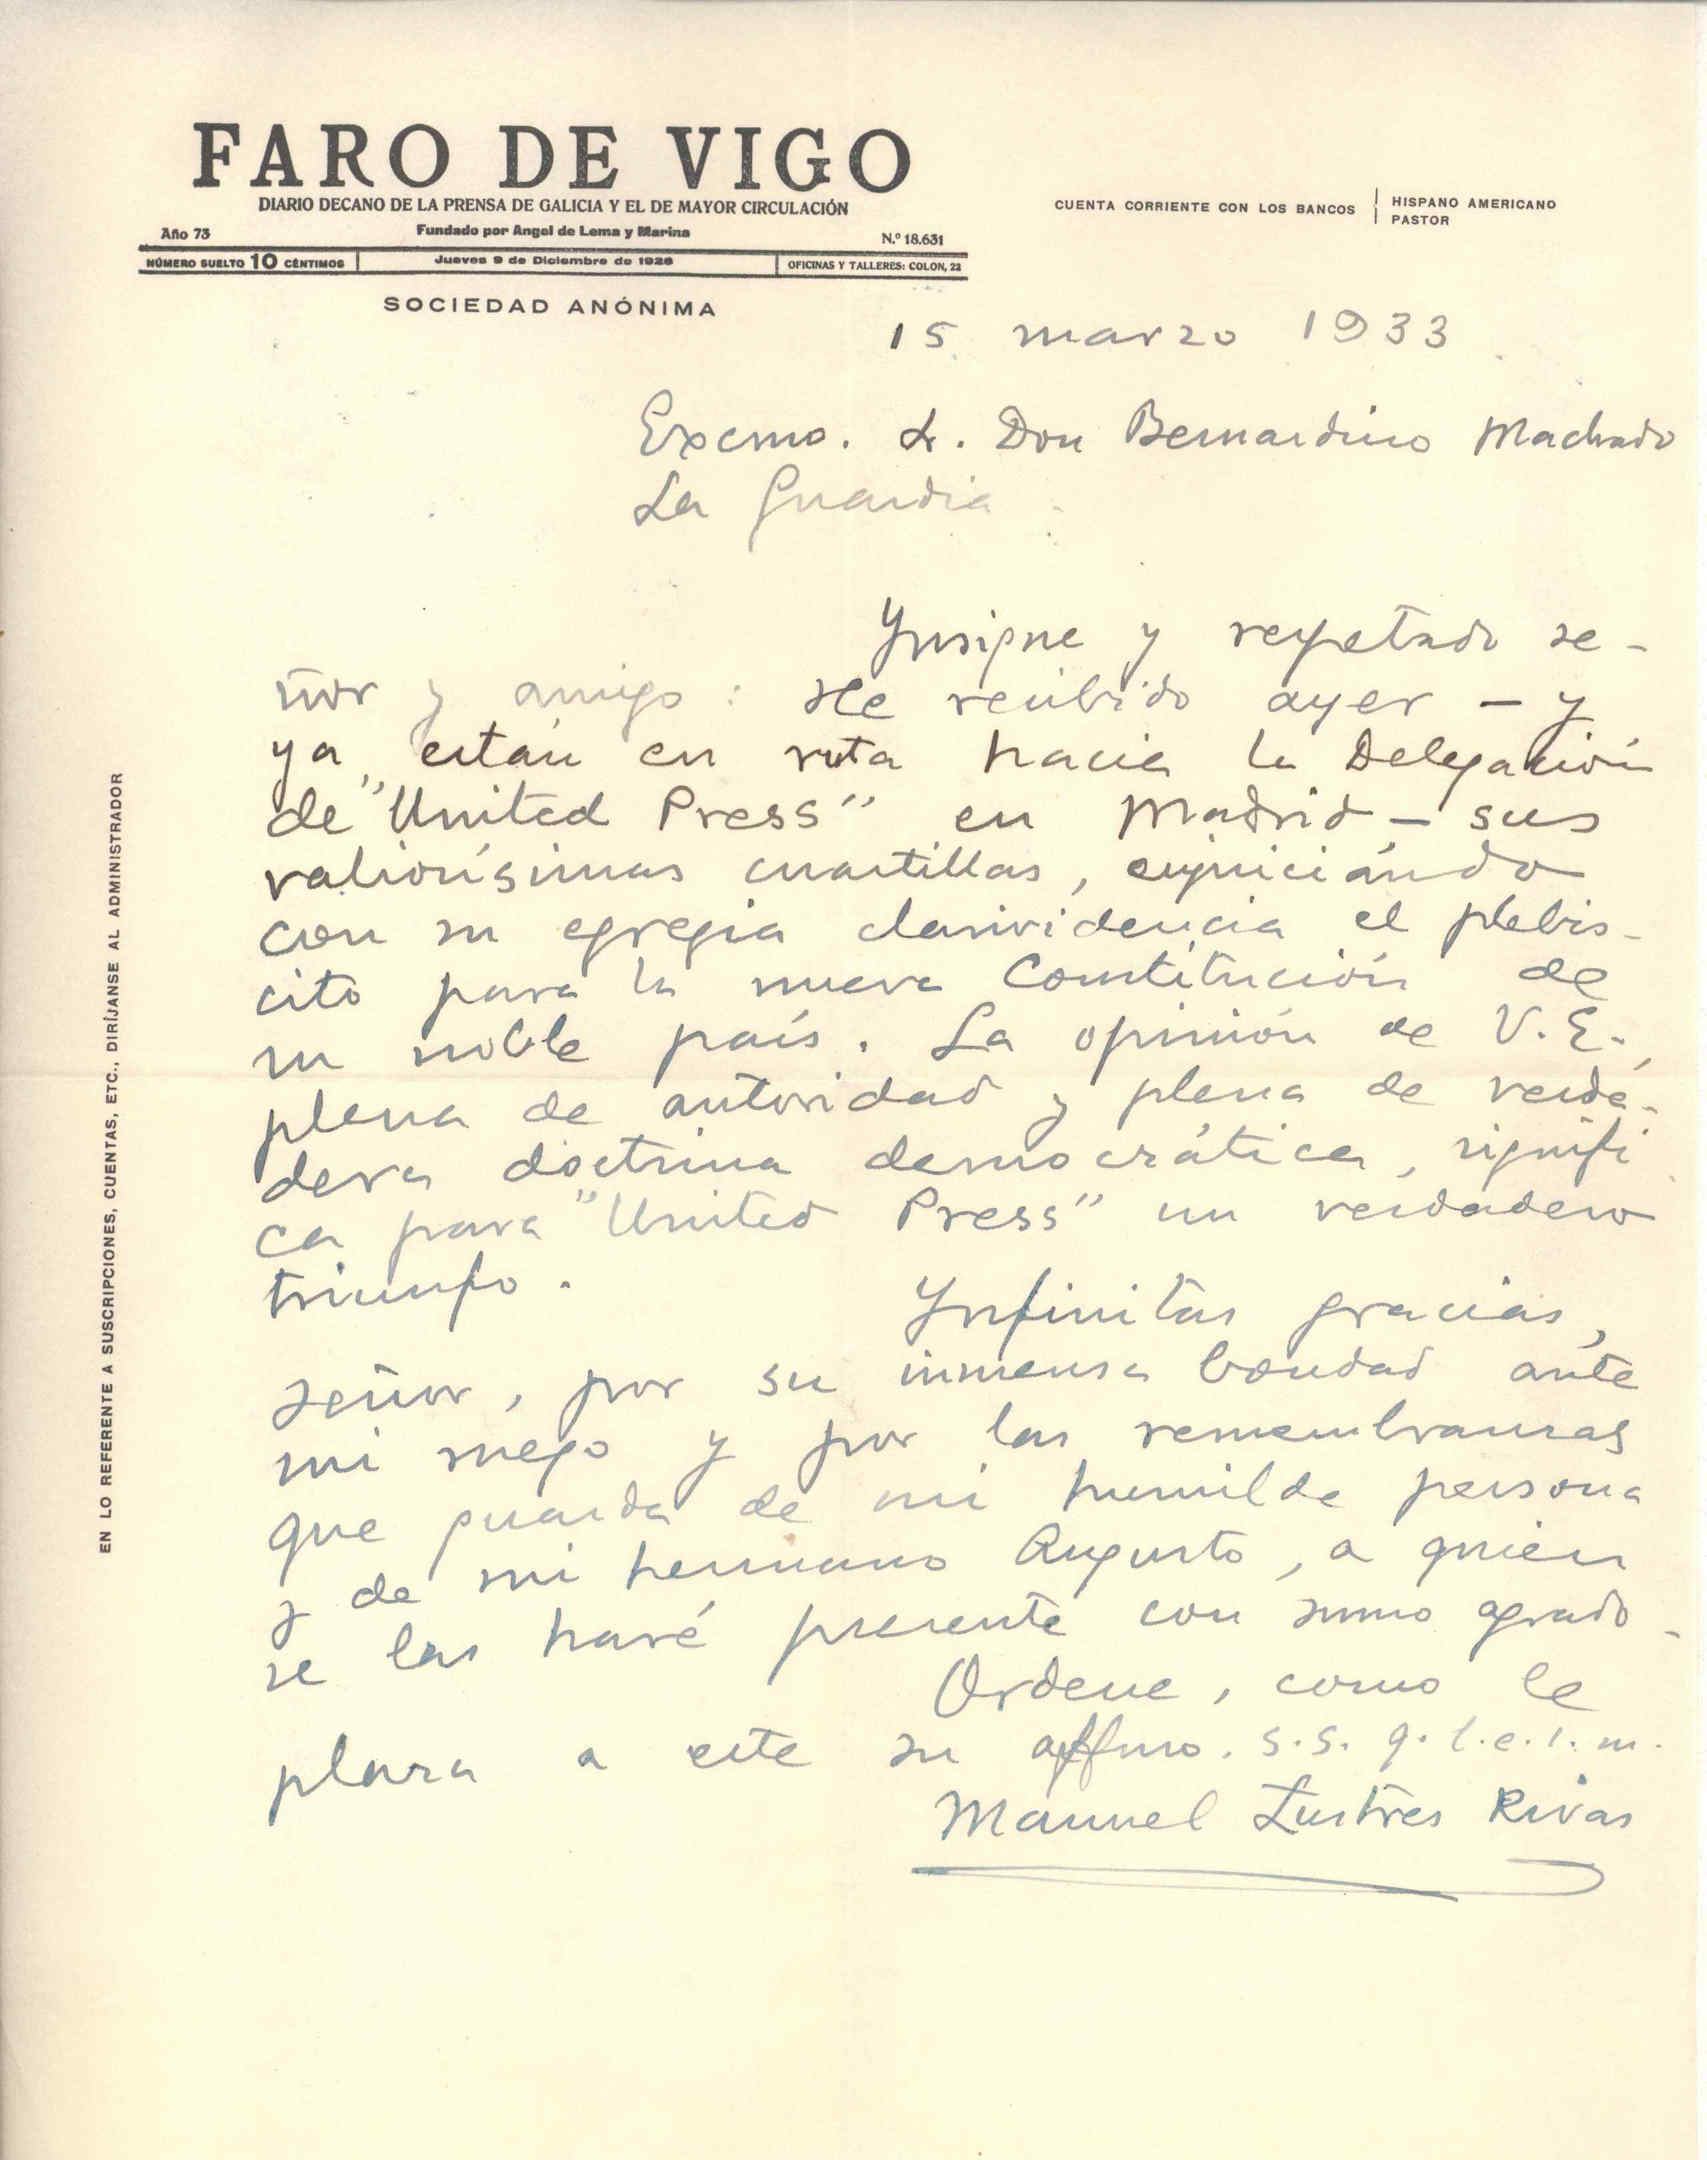 FARO DE VIGO
DIARIO DECANO DE LA PRENSA DE GALICIA Y EL DE MAYOR CIRCULACIÓN
Año 73 Fundado por Angel de Lema y Marina N.º 18.631
NÚMERO SUELTO 10 CÉNTIMOS Jueves 9 de Diciembre de 1926 OFICINAS Y TALLERES: COLON, 22
SOCIEDAD ANÓNIMA
CUENTA CORRIENTE CON LOS BANCOS HISPANO AMERICANO
PASTOR
EN LO REFERENTE A SUSCRIPCIONES, CUENTAS, ETC., DIRÍJANSE AL ADMINISTRADOR
15 marzo 1933
Excmo. Sr. Don Bernardino Machado
La Guardia
Ynsigne y respetado se-
ñor y amigo: He recibido ayer - y
ya están en ruta hacia la Delegación
de "United Press" en Madrid - sus
valiosísimas cuartillas, enjuiciando
con su egregia clarividencia el plebis-
cito para la nueva Constitución de
su noble país. La opinión de V. E.,
plena de autoridad y plena de verda-
dera doctrina democrática, signifi
ca para "United Press" un verdadero
triunfo.
Ynfinitas gracias,
señor, por su inmensa bondad ante
mi ruego y por las remembranzas
que guarda de mi humilde persona
y de mi hermano Augusto, a quien
se las haré presente con sumo agrado.
Ordene, como le
plazca a este su affmo. s.s. q. l. e. l. m.
Manuel Lustres Rivas